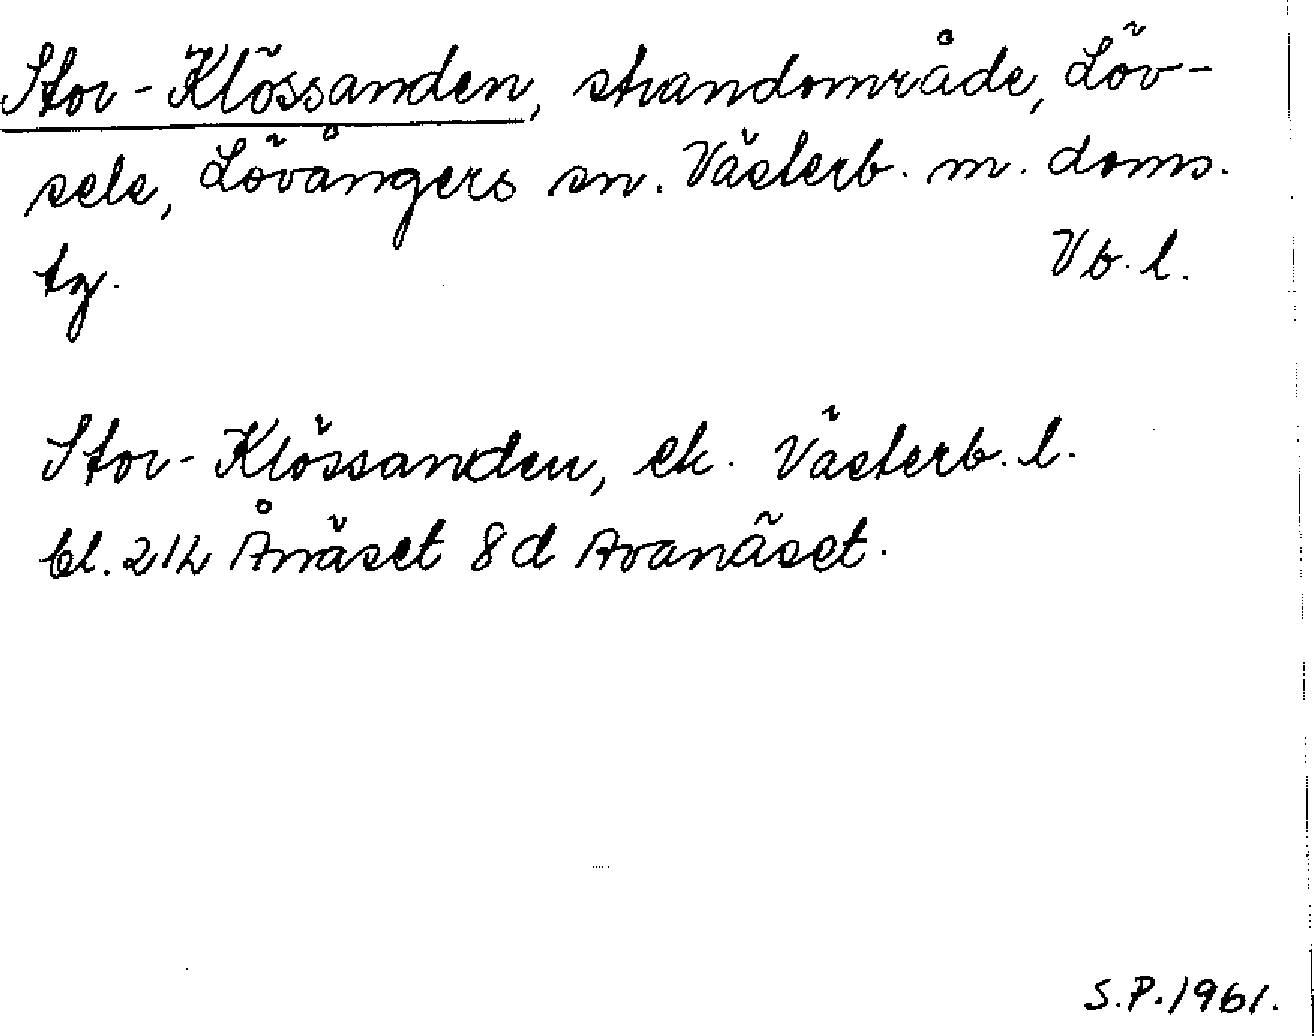 Stor-Klössanden, strandområde, Löv-
sele, Lövångers sn. Västerb. m. doms.
tg. Vb. l.
Stor-Klössanden, ek. Västerb. l.
bl. 21h Ånäset 8d Avanäset.
S.P. 1961.